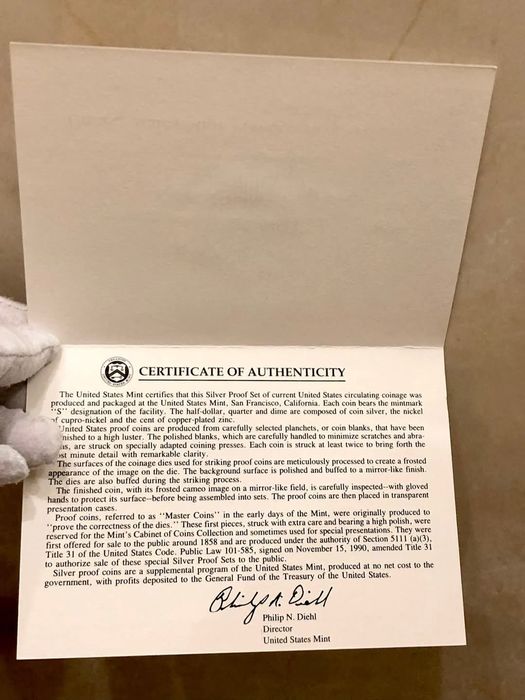 CERTIFICATE OF AUTHENTICITY
The United States Mint certifies that this Silver Proof Set of current United States circulating coinage was
produced and packaged at the United States Mint, San Francisco, California. Each coin bears the mintmark
"S" designation of the facility. The half-dollar, quarter and dime are composed of coin silver, the nickel
of cupro-nickel and the cent of copper-plated zinc.
United States proof coins are produced from carefully selected planchets, or coin blanks, that have been
nished to a high luster. The polished blanks, which are carefully handled to minimize scratches and abra-
ns, are struck on specially adapted coining presses. Each coin is struck at least twice to bring forth the
st minute detail with remarkable clarity.
The surfaces of the coinage dies used for striking proof coins are meticulously processed to create a frosted
appearance of the image on the die. The background surface is polished and buffed to a mirror-like finish.
The dies are also buffed during the striking process.
The finished coin, with its frosted cameo image on a mirror-like field, is carefully inspected--with gloved
hands to protect its surface--before being assembled into sets. The proof coins are then placed in transparent
presentation cases.
Proof coins, referred to as "Master Coins" in the early days of the Mint, were originally produced to
"prove the correctness of the dies." These first pieces, struck with extra care and bearing a high polish, were
reserved for the Mint's Cabinet of Coins Collection and sometimes used for special presentations. They were
first offered for sale to the public around 1858 and are produced under the authority of Section 5111 (a)(3),
Title 31 of the United States Code. Public Law 101-585, signed on November 15, 1990, amended Title 31
to authorize sale of these special Silver Proof Sets to the public.
Silver proof coins are a supplemental program of the United States Mint, produced at no net cost to the
government, with profits deposited to the General Fund of the Treasury of the United States.
Philip N. Diehl
Philip N. Diehl
Director
United States Mint